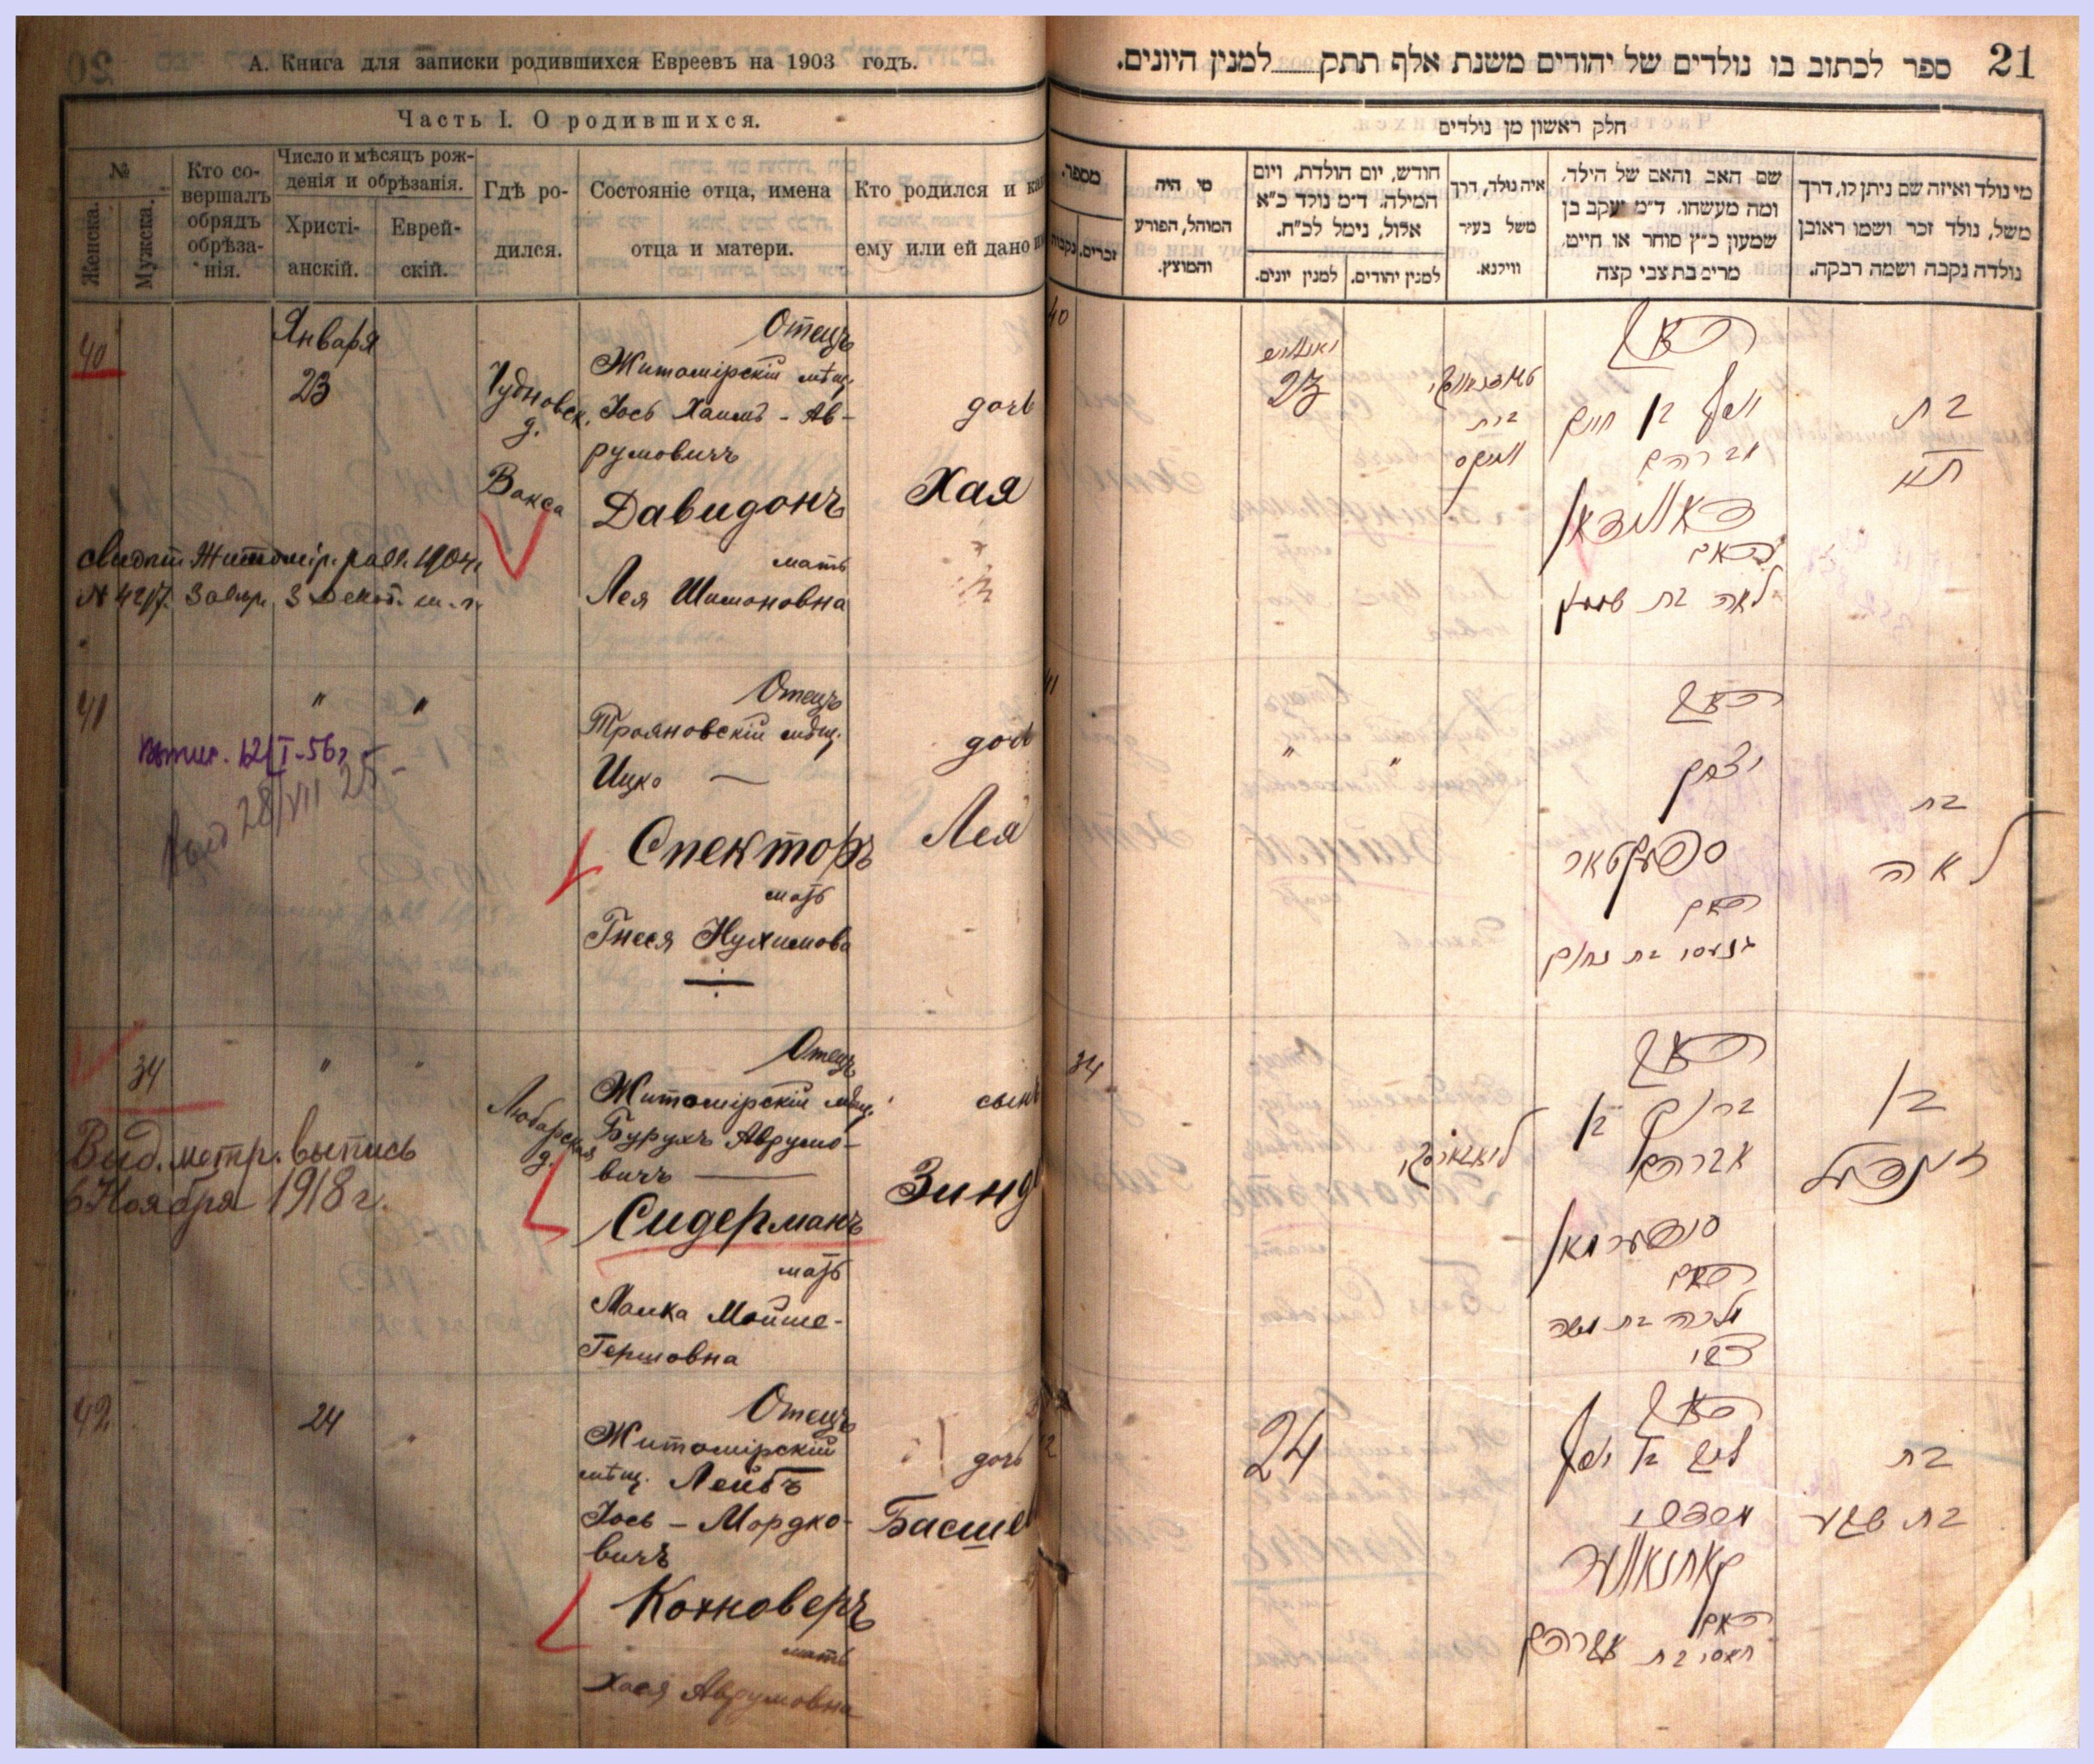 А. Книга для записки родившихся Евреевъ на 1903 годъ.
Часть I. О родившихся.
№
Женска.
Мужска.
Кто со-
вершалъ
обрядъ
обрѣза-
нія.
Число и мѣсяцъ рож-
денія и обрѣзанія.
Христі-
анскій.
Еврей-
скій.
Гдѣ ро-
дился.
Состояніе отца, имена
отца и матери.
Кто родился и
ему или ей дано
40
Января
23
Чудновск.
д.
Вакса
Отецъ
Житомірскій мѣщ.
Іось Хаимъ - Ав-
румовичъ
Давидонъ
мать
Лея Шимоновна
дочь
Хая
свидѣт. Житомір. равв. 1904г.
41
"
"
12/I-56г.
28/VII 25
Отецъ
Трояновскій мѣщ.
Ицко —
Спекторъ
мать
Гнеся Нухимова
дочь
Лея
34
"
"
Выд. метр. выпись
6 Ноября 1918 г.
Любарская
д.
Отецъ
Житомірскій мѣщ.
Бурухъ Аврумо-
вичъ —
Сидерманъ
мать
Малка Мойше-
Гершовна
сынъ
Зинд
42
24
"
Отецъ
Житомірскій
мѣщ. Лейбъ
Іось - Мордко-
вичъ
Кохноверъ
мать
Хася Аврумовна
дочь
Басше
21
ספר לכתוב בו נולדים של יהודים משנת אלף תתק למנין היונים.
חלק ראשון מן נולדים
מספר.
זכרים.
נקבות
מי היה
המוהל, הפורע
והמוצץ.
חודש, יום הולדת, ויום
המילה. ד״מ נולד כ״א
אלול, נימל לכ״ח.
למנין יהודים.
למנין יונים.
איה נולד, דרך
משל בעיר
ווילנא.
שם האב והאם של הילד,
ומה מעשהו. ד״מ יעקב בן
שמעון כ״ץ סוחר או חייט,
מרים בת צבי קצה
מי נולד ואיזה שם ניתן לו, דרך
משל, נולד זכר ושמו ראובן
נולדה נקבה ושמה רבקה.
40
23
האב
יוסף בן חיים
אברהם
האם
לאה בת שמעון
בת
חי׳
"
"
האב
יצחק
ספעקטאר
האם
גנעסי בת נחום
בת
לאה
34
האב
ברוך בן
אברהם
סידערמאן
האם
מלכה בת משה
צבי
בן
זינדל
24
האב
ליב בן יוסף
מרדכי
קאחנאווער
האם
חאסי בת אברהם
בת
בת שבע